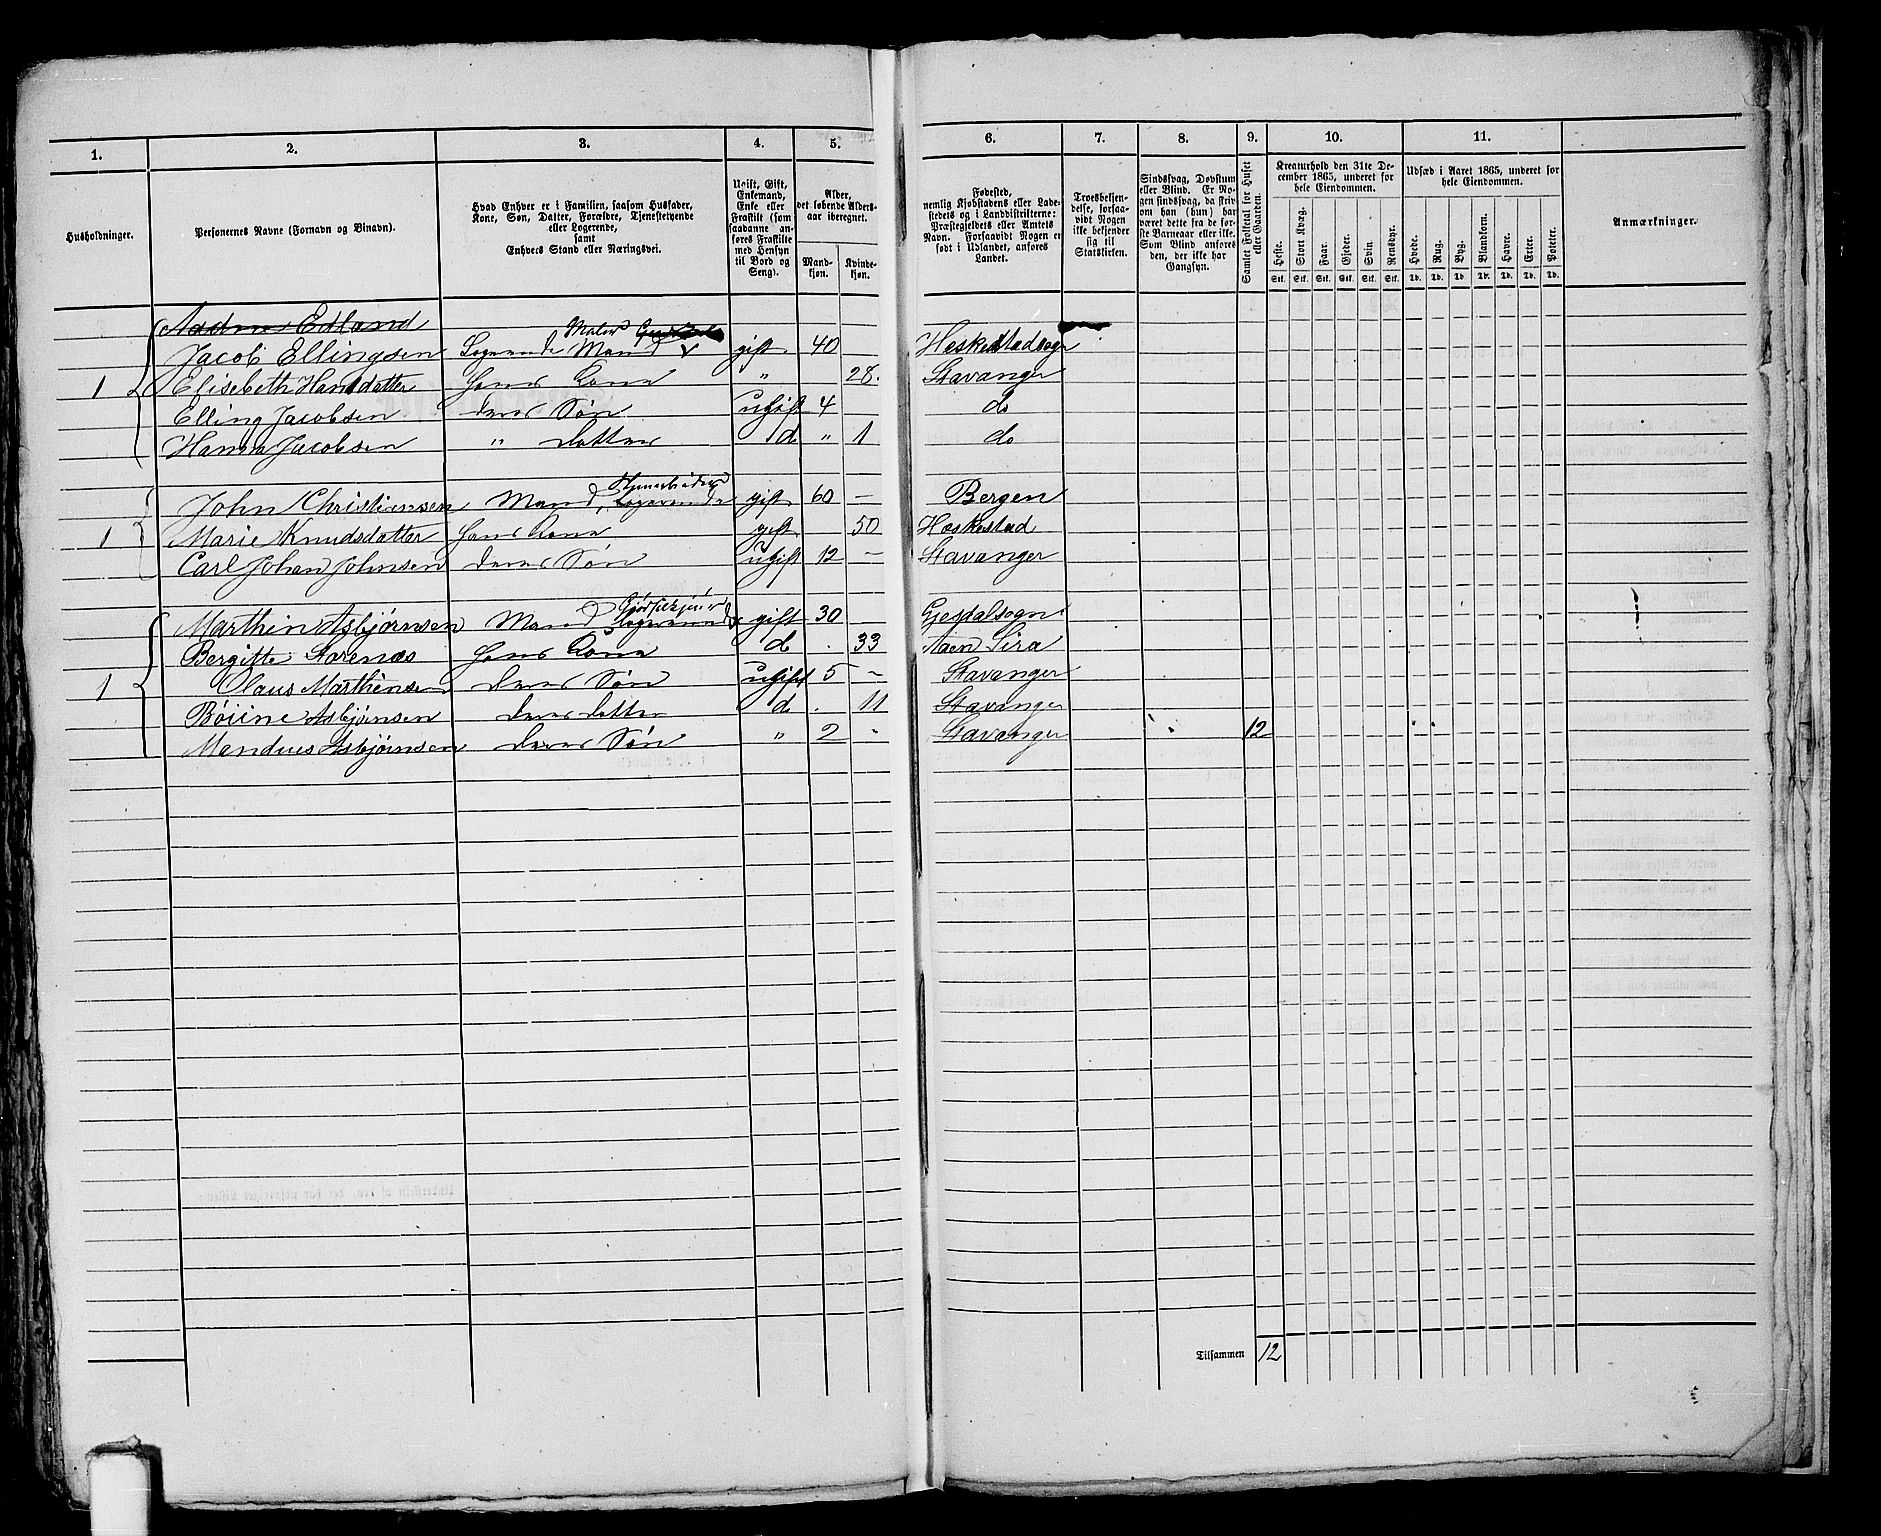 1. 2. 3. 4. 5. 6. 7. 8. 9. 10. 11.
Husholdninger.
Personernes Navne (Fornavn og Binavn).
Hvad Enhver er i Familien, saasom Husfader,
Kone, Søn, Datter, Forældre, Tjenestetyende
eller Logerende,
samt
Enhvers Stand eller Næringsvei.
Ugift, Gift,
Enkemand,
Enke eller
Fraskilt (som
saadanne an-
føres Fraskilte
med Hensyn
til Bord og
Seng).
Alder,
det løbende Alders-
aar iberegnet.
Mand-
kjøn.
Kvinde-
kjøn.
Fødested,
nemlig Kjøbstadens eller Lade-
stedets og i Landdistrikterne:
Præstegjeldets eller Amtets
Navn. Forsaavidt Nogen er
født i Udlandet, anføres
Landet.
Troesbekjen-
delse, forsaa-
vidt Nogen
ikke bekjender
sig til
Statskirken.
Sindssvag, Døvstum
eller Blind. Er No-
gen sindssvag, da skriv
om han (hun) har
været dette fra de før-
ste Barneaar eller ikke.
Som Blind anføres
den, der ikke har
Gangsyn.
Samlet Folketal for Huset
eller Gaarden.
Kreaturhold den 31te De-
cember 1865, underet for
hele Eiendommen.
Heste. Stort Kvæg. Faar. Gjeder. Svin. Rensdyr.
Stk. Stk. Stk. Stk. Stk. Stk.
Udsæd i Aaret 1865, underet for
hele Eiendommen.
Hvede. Rug. Byg. Blandkorn. Havre. Erter. Poteter.
Td. Td. Td. Td. Td. Td. Td.
Anmærkninger.
Aadne Edland
Jacob Ellingsen Logerende Maler Mand gift 40 Heskestadsogn
1 Elisebeth Hansdatter Hans Kone " 28. Stavanger
Elling Jacobsen deres Søn ugift 4 do
Hanna Jacobsen " Datter d " 1 do
John Christiansen Mand, Logerende gift 60 — Bergen
1 Marie Knudsdatter Hans Kone gift 50 Heskestad
Carl Johan Johnsen deres Søn ugift 12 — Stavanger
Marthin Asbjørnsen Mand Logerende gift 30 Gjesdalsogn
Bergitte Hans Kone d . 33 Aaen Sira
1 Olaus Marthinsen deres Søn ugift 5 — Stavanger
Asbjørnsen deres datter d . 11 Stavanger
Mandius Asbjørnsen deres Søn " 2 " Stavanger 12
Tilsammen 12